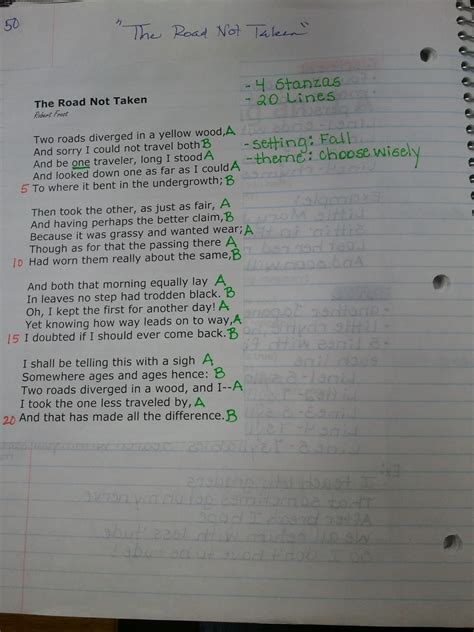 50
"The Road Not Taken"
- 4 Stanzas
- 20 Lines
The Road Not Taken
Robert Frost
Two roads diverged in a yellow wood, A
And sorry I could not travel both B
- setting: Fall
And be one traveler, long I stood A
- theme: Choose wisely
And looked down one as far as I could A
5 To where it bent in the undergrowth; B
Then took the other, as just as fair, A
And having perhaps the better claim, B
Because it was grassy and wanted wear; A
Though as for that the passing there A
10 Had worn them really about the same, B
And both that morning equally lay A
In leaves no step had trodden black. B
Oh, I kept the first for another day! A
Yet knowing how way leads on to way, A
15 I doubted if I should ever come back. B
I shall be telling this with a sigh A
Somewhere ages and ages hence: B
Two roads diverged in a wood, and I-- A
I took the one less traveled by, A
20 And that has made all the difference. B